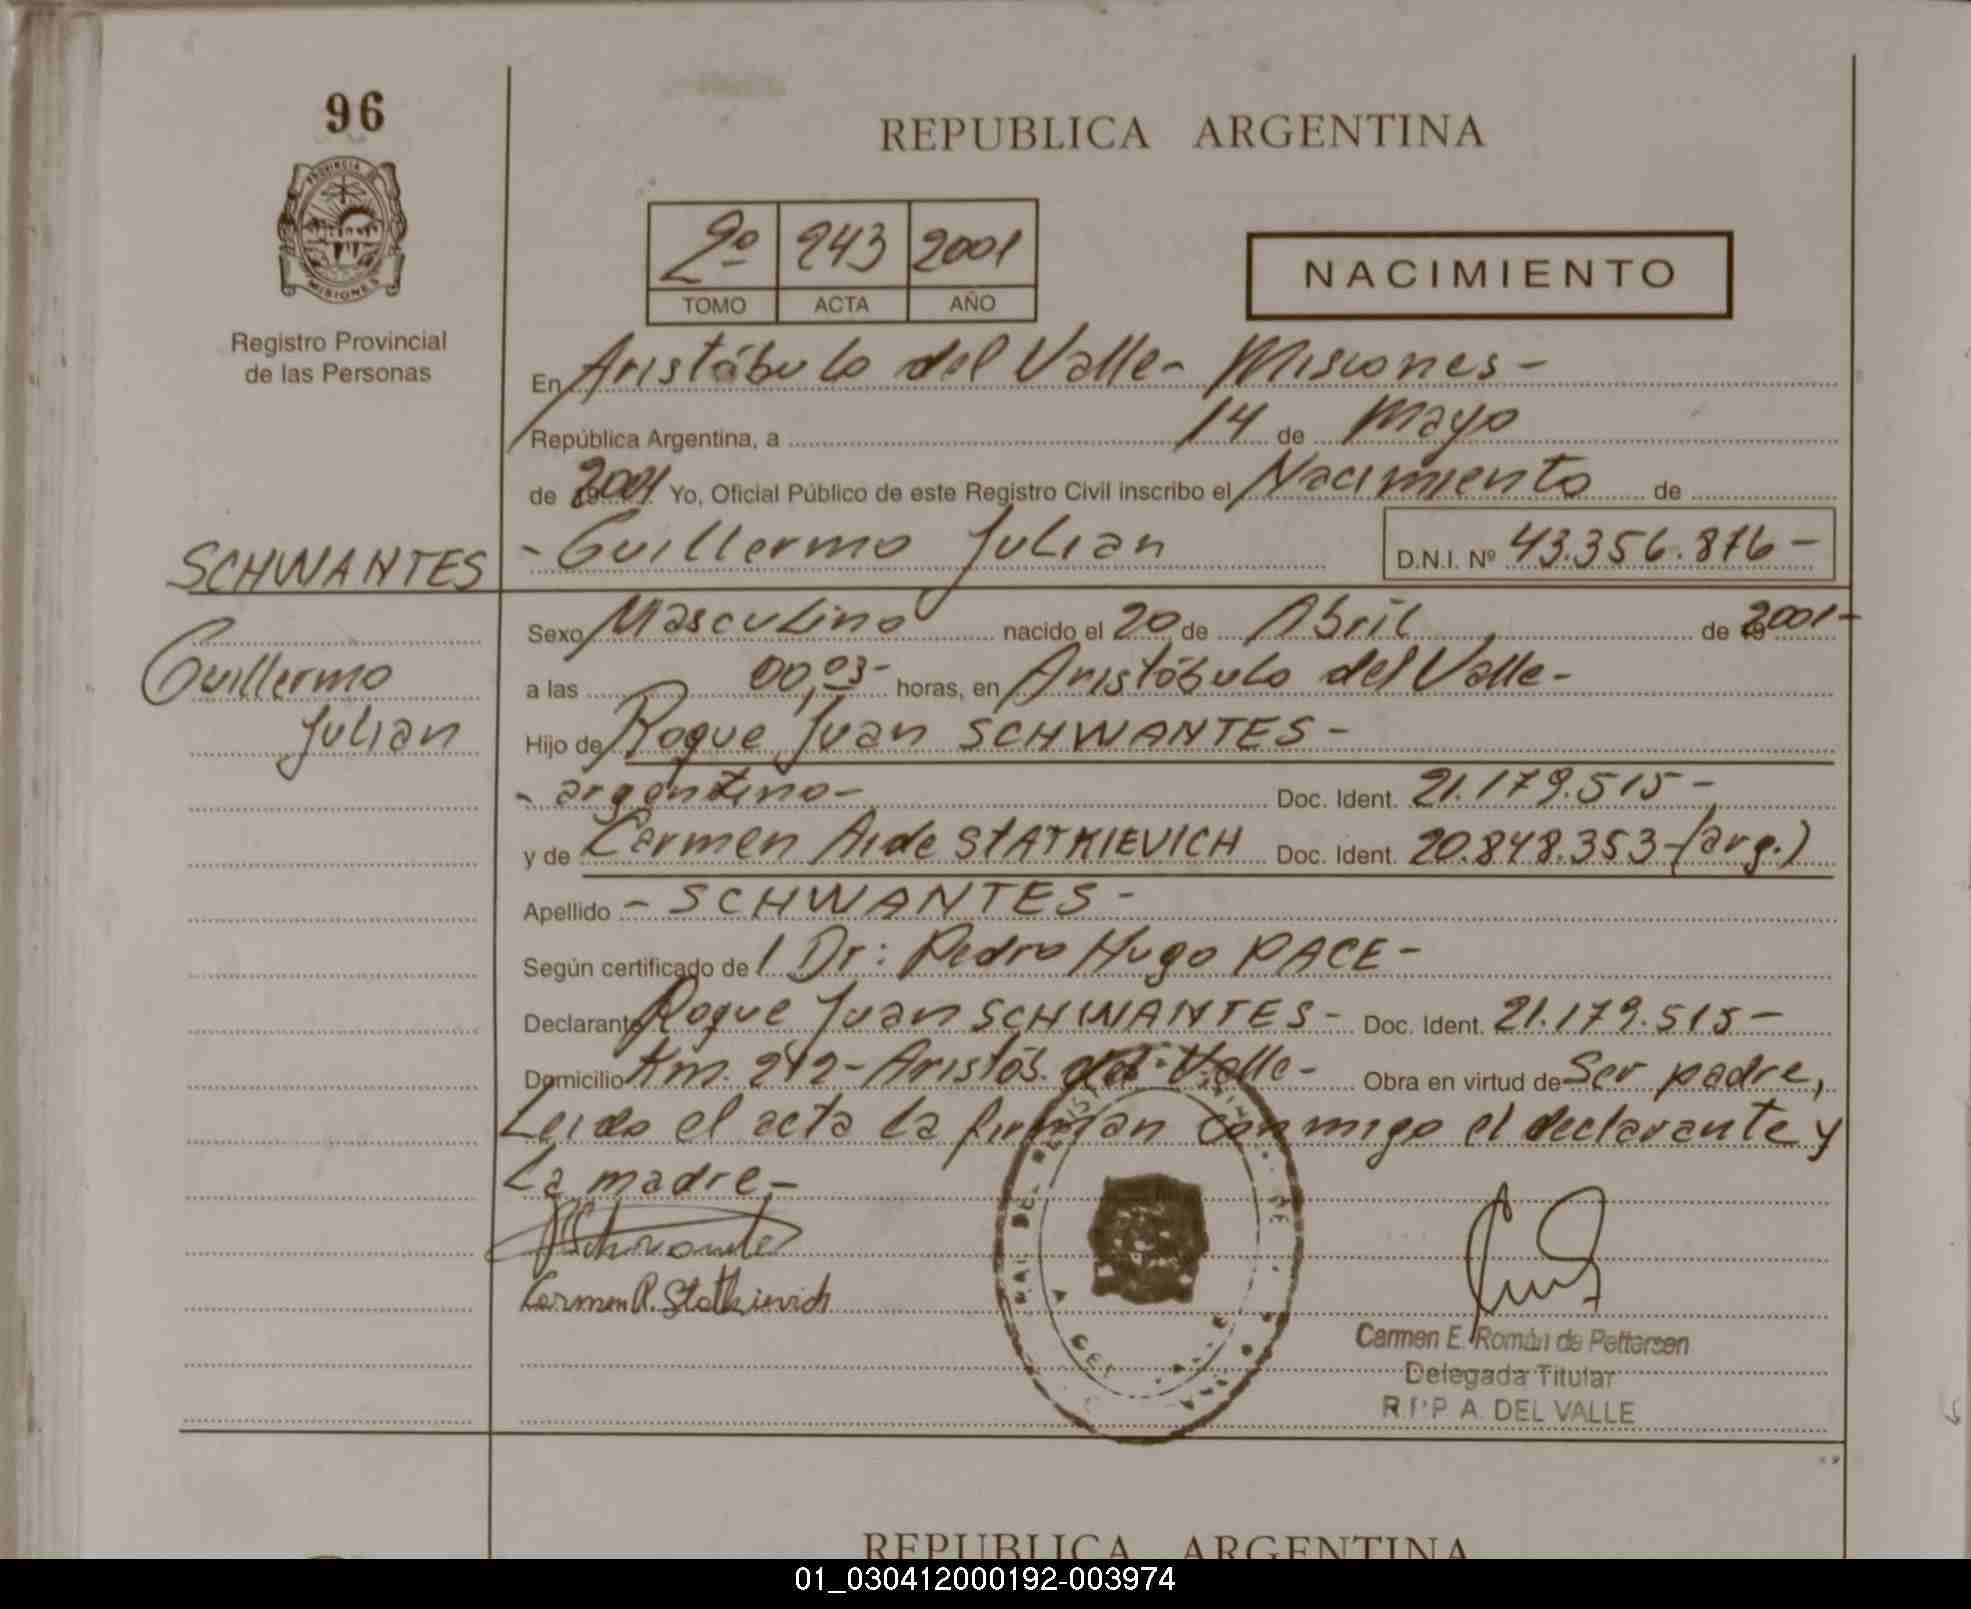 96
PROVINCIA DE
MISIONES
Registro Provincial
de las Personas
SCHWANTES
Guillermo
Julian
REPUBLICA ARGENTINA
2º 243 2001
TOMO ACTA AÑO
NACIMIENTO
En Aristóbulo del Valle - Misiones -
República Argentina, a 14 de Mayo
de 2001 Yo, Oficial Público de este Registro Civil inscribo el Nacimiento de
- Guillermo Julian D.N.I. Nº 43.356.876 -
Sexo Masculino nacido el 20 de Abril de 2001 -
a las 00,03 - horas, en Aristóbulo del Valle -
Hijo de Roque Juan SCHWANTES -
- argentino - Doc. Ident. 21.179.515 -
y de Carmen Aide STATKIEVICH Doc. Ident. 20.848.353 - (arg.)
Apellido - SCHWANTES -
Según certificado de / Dr: Pedro Hugo PACE -
Declarante Roque Juan SCHWANTES - Doc. Ident. 21.179.515 -
Domicilio Km. 242 - Aristób. del Valle - Obra en virtud de Ser padre,
Leido el acta la firman conmigo el declarante y
La madre, -
Carmen A. Statkievich
Carmen E. Román de Pettersen
Delegada Titular
R.P.P A. DEL VALLE
REPUBLICA ARGENTINA
01_030412000192-003974